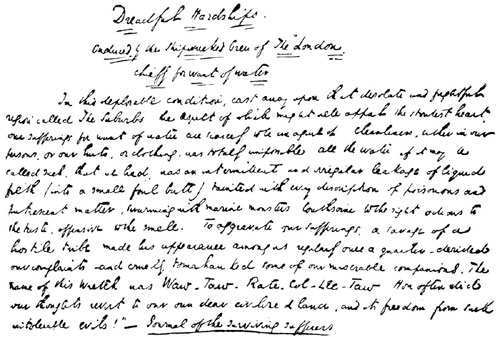 Dreadful Hardships.
Endured by the Shipwrecked Crew of The "London,
chiefly for want of water
In this deplorable condition, cast away upon that desolate and frightful
region called The Suburbs the aspect of which might well appal the stoutest heart,
our sufferings for want of water are scarcely to be imagined. Cleanliness, either in our
persons, or our huts, or clothing, was totally impossible all the water if it may be
called such, that we had, was an intermittent and irregular leakage of liquid
filth (into a small foul butt) tainted with every description of poisonous and
putrescent matter, swarming with marine monsters loathsome to the sight odious to
the taste, offensive to the smell. To aggravate our sufferings, a savage of a
hostile tribe made his appearance among us regularly once a quarter – derided
our complaints – and cruelly tomahawked some of our miserable companions. The
name of this wretch was Waw-Taw-Rate-Col-Lec-Taw How often did
our thoughts revert to our own dear civilized land, and its freedom from such
intolerable evils!" – Journal of the surviving sufferers